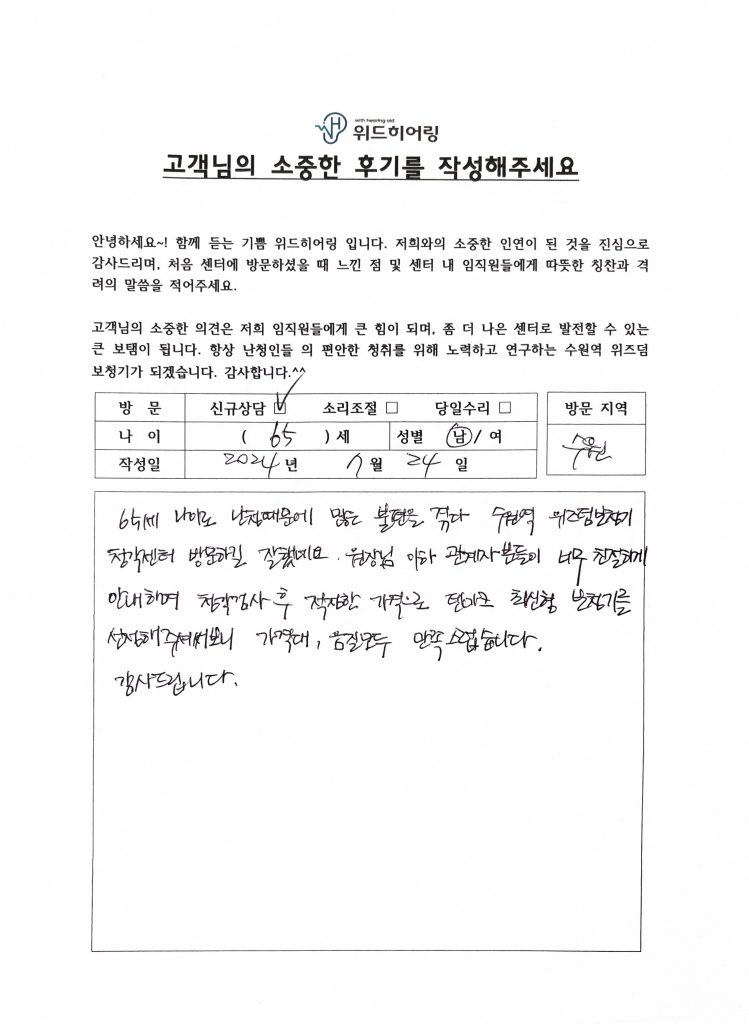 with hearing aid
위드히어링
고객님의 소중한 후기를 작성해주세요
안녕하세요~! 함께 듣는 기쁨 위드히어링 입니다. 저희와의 소중한 인연이 된 것을 진심으로
감사드리며, 처음 센터에 방문하셨을 때 느낀 점 및 센터 내 임직원들에게 따뜻한 칭찬과 격
려의 말씀을 적어주세요.
고객님의 소중한 의견은 저희 임직원들에게 큰 힘이 되며, 좀 더 나은 센터로 발전할 수 있는
큰 보탬이 됩니다. 항상 난청인들 의 편안한 청취를 위해 노력하고 연구하는 수원역 위즈덤
보청기가 되겠습니다. 감사합니다.^^
방 문 신규상담 ☑ 소리조절 □ 당일수리 □ 방문 지역
나 이 ( 65 ) 세 성별 남 / 여 수원
작성일 2024 년 7 월 24 일
65세 나이로 난청때문에 많은 불편을 겪다 수원역 위즈덤보청기
청각센터 방문하길 잘했네요. 원장님 이하 관계자분들이 너무 친절하게
안내하며 청각검사 후 적정한 가격으로 덴마크 최신형 보청기를
선정해주셔써보니 가격대, 음질모두 만족스럽습니다.
감사드립니다.